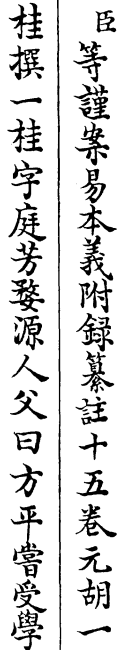 臣等謹案易本義附録纂註十五巻元胡一
桂撰一桂字庭芳婺源人父曰方平嘗受學